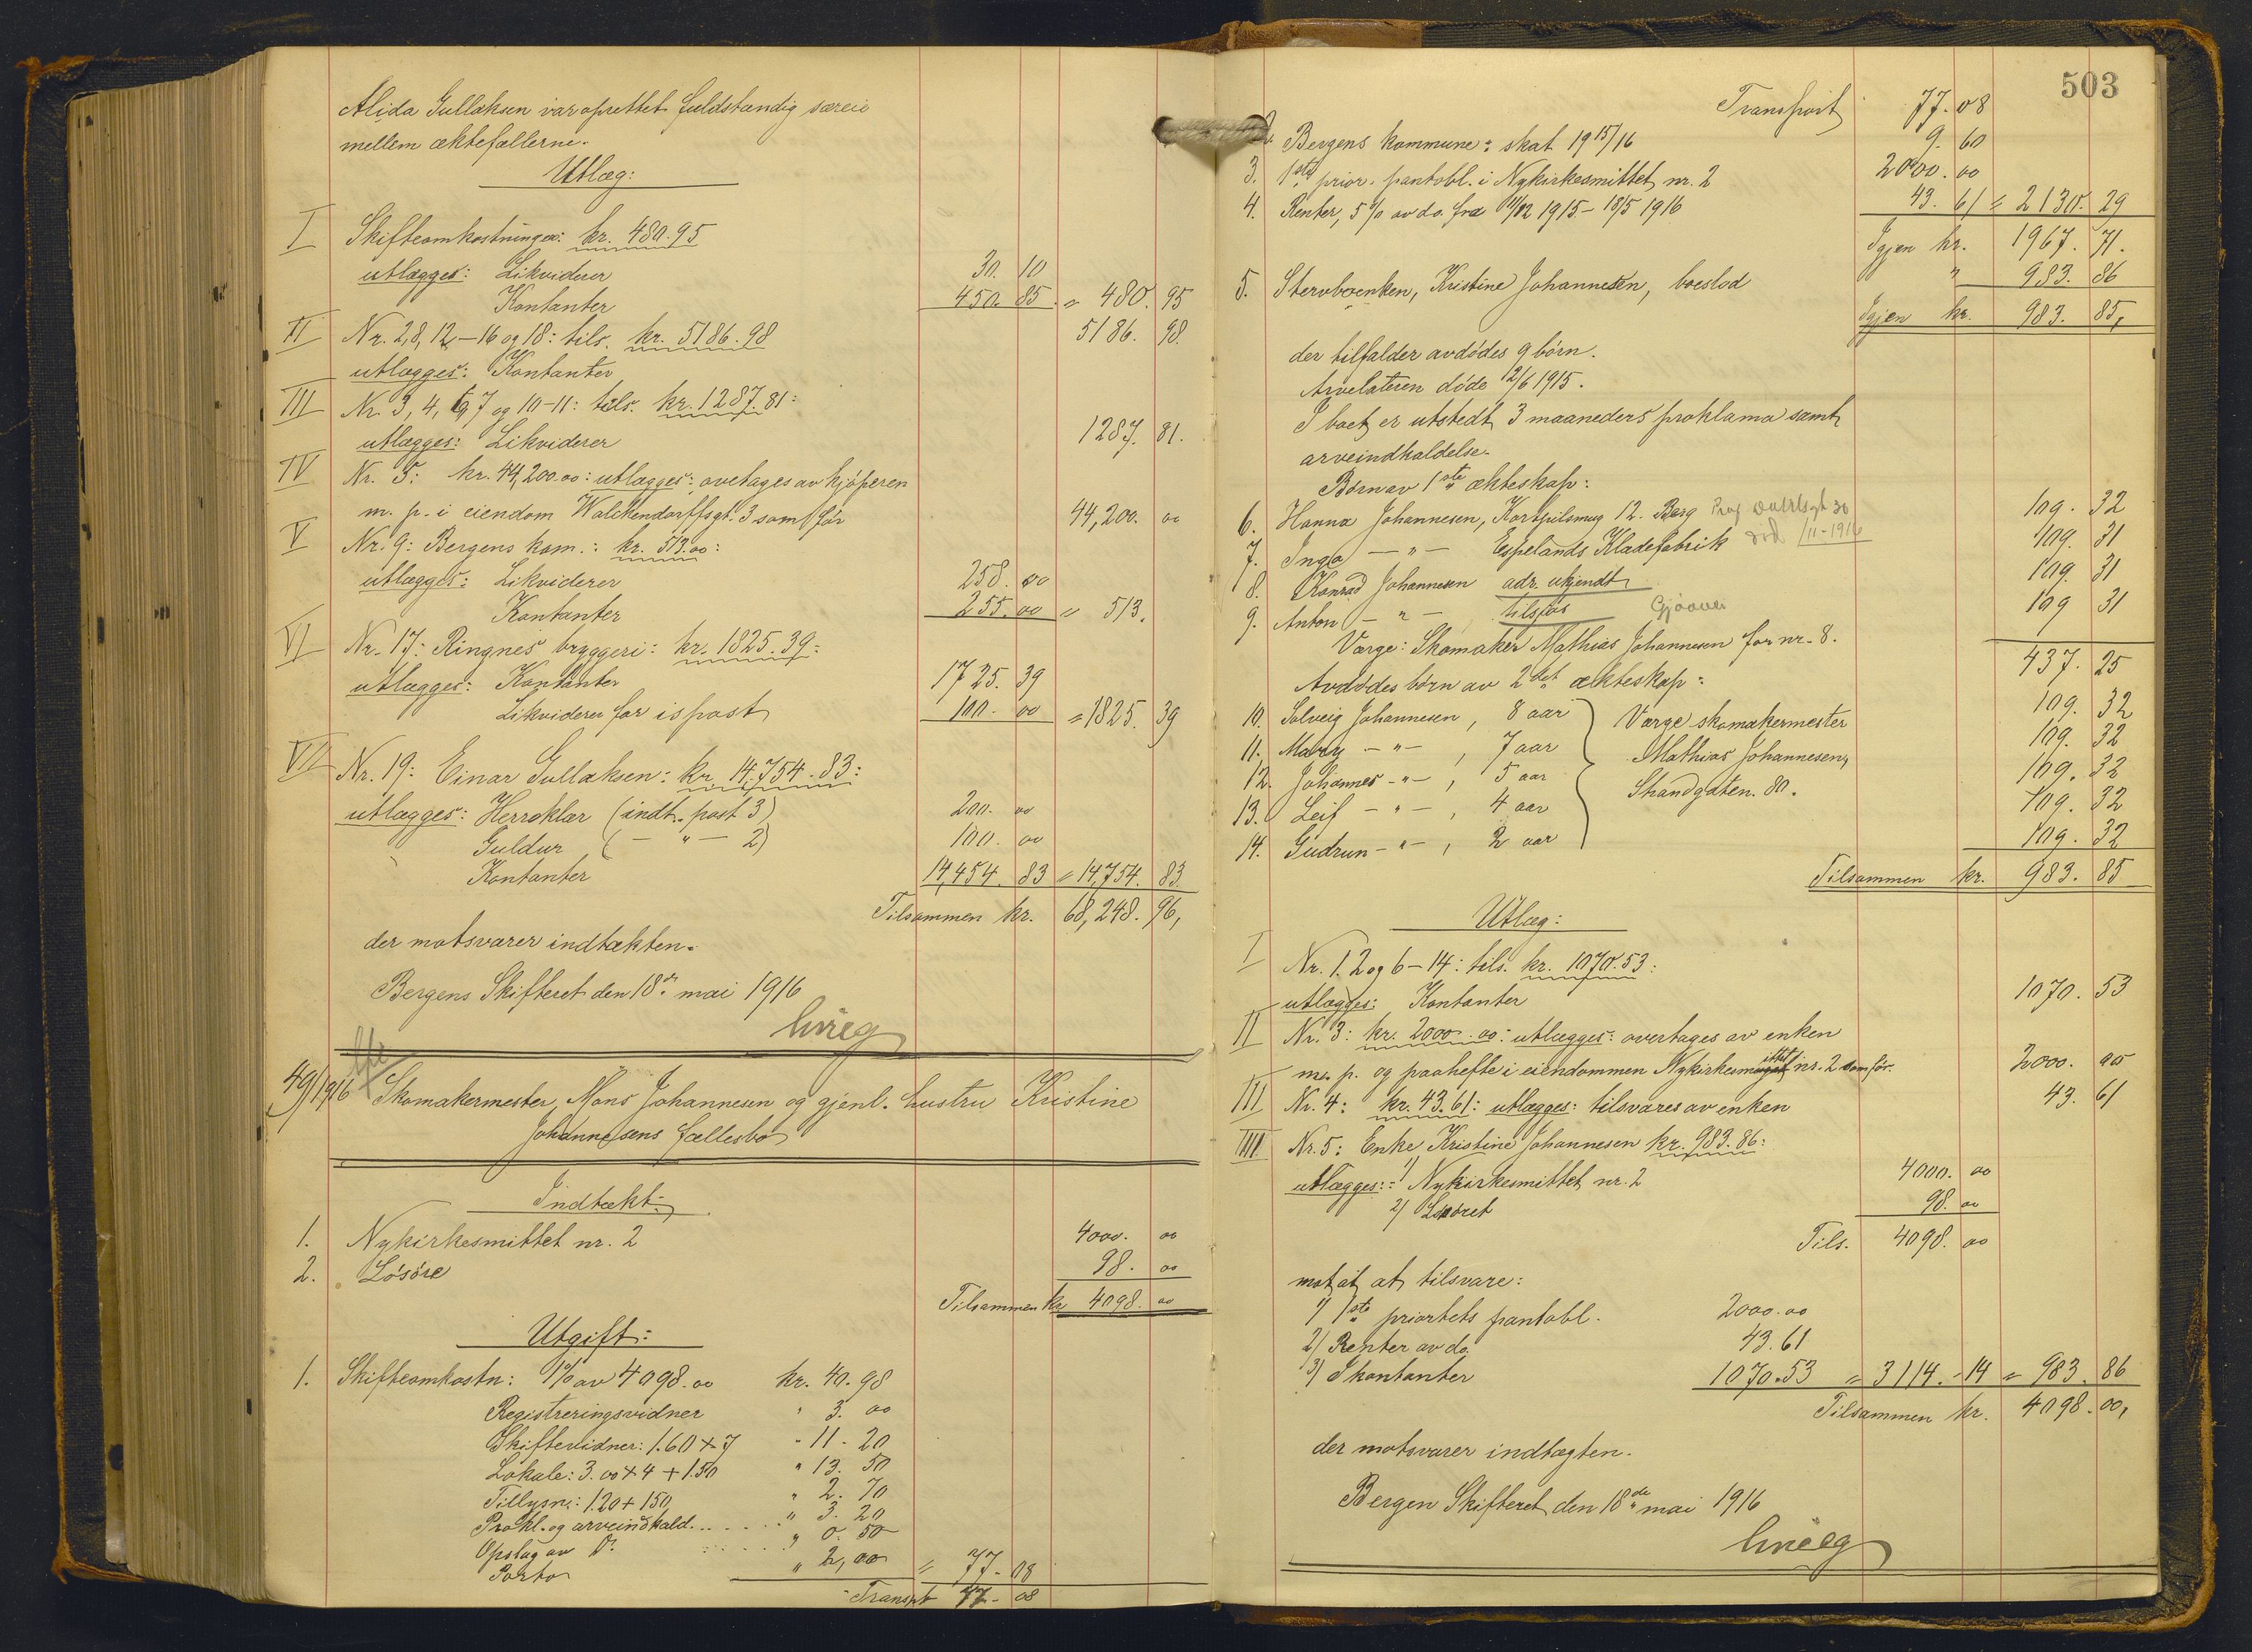 Alida Gullaksen var oprettet fuldstændig særeie
mellem ektefællerne.
Utlæg:
I Skifteomkostninger: kr. 480.95
utlægges: Likviderer 30. 10
Kontanter 450. 85 = 480. 95
II Nr. 2, 8, 12–16 og 18: tils. kr. 5186.98 5186. 98.
utlægges: Kontanter
III Nr. 3, 4, 6, 7 og 10-11: tils. kr. 1287.81:
utlægges: Likviderer 1287. 81.
IV Nr. 5: kr. 44,200.00: utlægges: overtages av kjøperen
m. p. i eiendom Walckendorffsgt. 3 som før 44,200. 00
V Nr. 9: Bergens kom.: kr. 513.00:
utlægges: Likviderer 258. 00
Kontanter 255. 00 = 513.
VI Nr. 17: Ringnes bryggeri: kr. 1825.39:
utlægges: Kontanter 1725. 39
Likviderer for ispost 100. 00 = 1825. 39
VII Nr. 19: Einar Gullaksen: kr. 14,754.83:
utlægges: Herreklær (indt. post 3) 200. 00
Guldur ( — " — 2) 100. 00
Kontanter 14,454. 83 = 14,754. 83
Tilsammen kr. 68,248. 96,
der motsvarer indtækten.
Bergens Skifteret den 18de mai 1916
49/1916 Skomakermester Mons Johannesen og gjenl. hustru Kristine
Johannesens fællesbo
Indtækt:
1. Nykirkesmittet nr. 2 4000. 00
2. Løsøre 98. 00
Tilsammen kr 4098. 00
Utgift:
1. Skifteomkostn: 1% av 4098.00 kr. 40.98
Registreringsvidner " 3. 00
Skiftevidner: 1.60 × 7 " 11. 20
Lokale: 3.00 × 4 + 1.50 " 13. 50
Tillysn: 1.20 + 150 " 2. 70
Prokl. og arveindkald. . . . . . " 3. 20
Opslag av D: . . . . . " 0. 50
Porto " 2,00 = 77. 08
Transpt 77. 08
503
Transport 77. 08
2. Bergens kommune: skat 1915/16 9. 60
3. 1ste prior. pantobl. i Nykirkesmittet nr. 2 2000. 00
4. Renter, 5% av do. fra 11/12 1915 – 18/5 1916 43. 61 = 2130. 29
Igjen kr. 1967. 71.
5. Stervboenken, Kristine Johannesen, boeslod " 983. 86
Igjen kr. 983. 85,
der tilfalder avdødes 9 børn.
Arvelateren døde 12/6 1915.
I boet er utstedt 3 maaneders proklama samt
arveindkaldelse.
Børn av 1ste ekteskap:
6. Hanna Johannesen, Korspilsmug 12. Berg 109. 32
7. Inga — " — Espelands Klædefabrik 109. 31
8. Konrad Johannesen adr. ukjendt 109. 31
9. Anton — " — tilsjøs 109 31
Værge: Skomaker Mathias Johannesen for nr. 8. 437. 25
Avdødes børn av 2det ekteskap:
10. Solveig Johannesen, 8 aar Værge skomakermester 109. 32
11. Mary — " —, 7 aar Mathias Johannesen, 109. 32
12. Johannes — " —, 5 aar Strandgaten. 80. 109. 32
13. Leif — " —, 4 aar 109. 32
14. Gudrun — " —, 2 aar 109. 32
Tilsammen kr. 983. 85
Utlæg:
I Nr. 1. 2 og 6–14: tils. kr. 1070.53:
utlægges: Kontanter 1070. 53
II Nr. 3: kr. 2000.00: utlægges: overtages av enken
m. p. og paahefte i eiendommen Nykirkesmittet nr. 2 som før. 2000. 00
III Nr. 4: kr. 43.61: utlægges: tilsvares av enken 43. 61
IIII Nr. 5: Enke Kristine Johannesen kr. 983.86:
utlægges: 1) Nykirkesmittet nr. 2 4000. 00
2) Løsøret 98. 00
Tils. 4098. 00
mot at at tilsvare:
1) 1ste priortets pantobl. 2000.00
2) Renter av do. 43.61
3) I kontanter 1070.53 = 3114.14 = 983. 86
Tilsammen kr. 4098.00,
der motsvarer indtægten.
Bergen Skifteret den 18de mai 1916